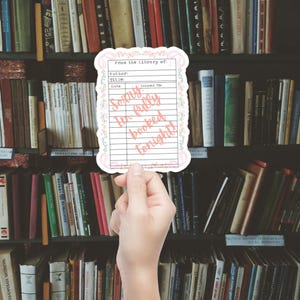 From the Library of:
Author:
Title:
Date Issued To
Sorry,
I'm fully
booked
tonight!